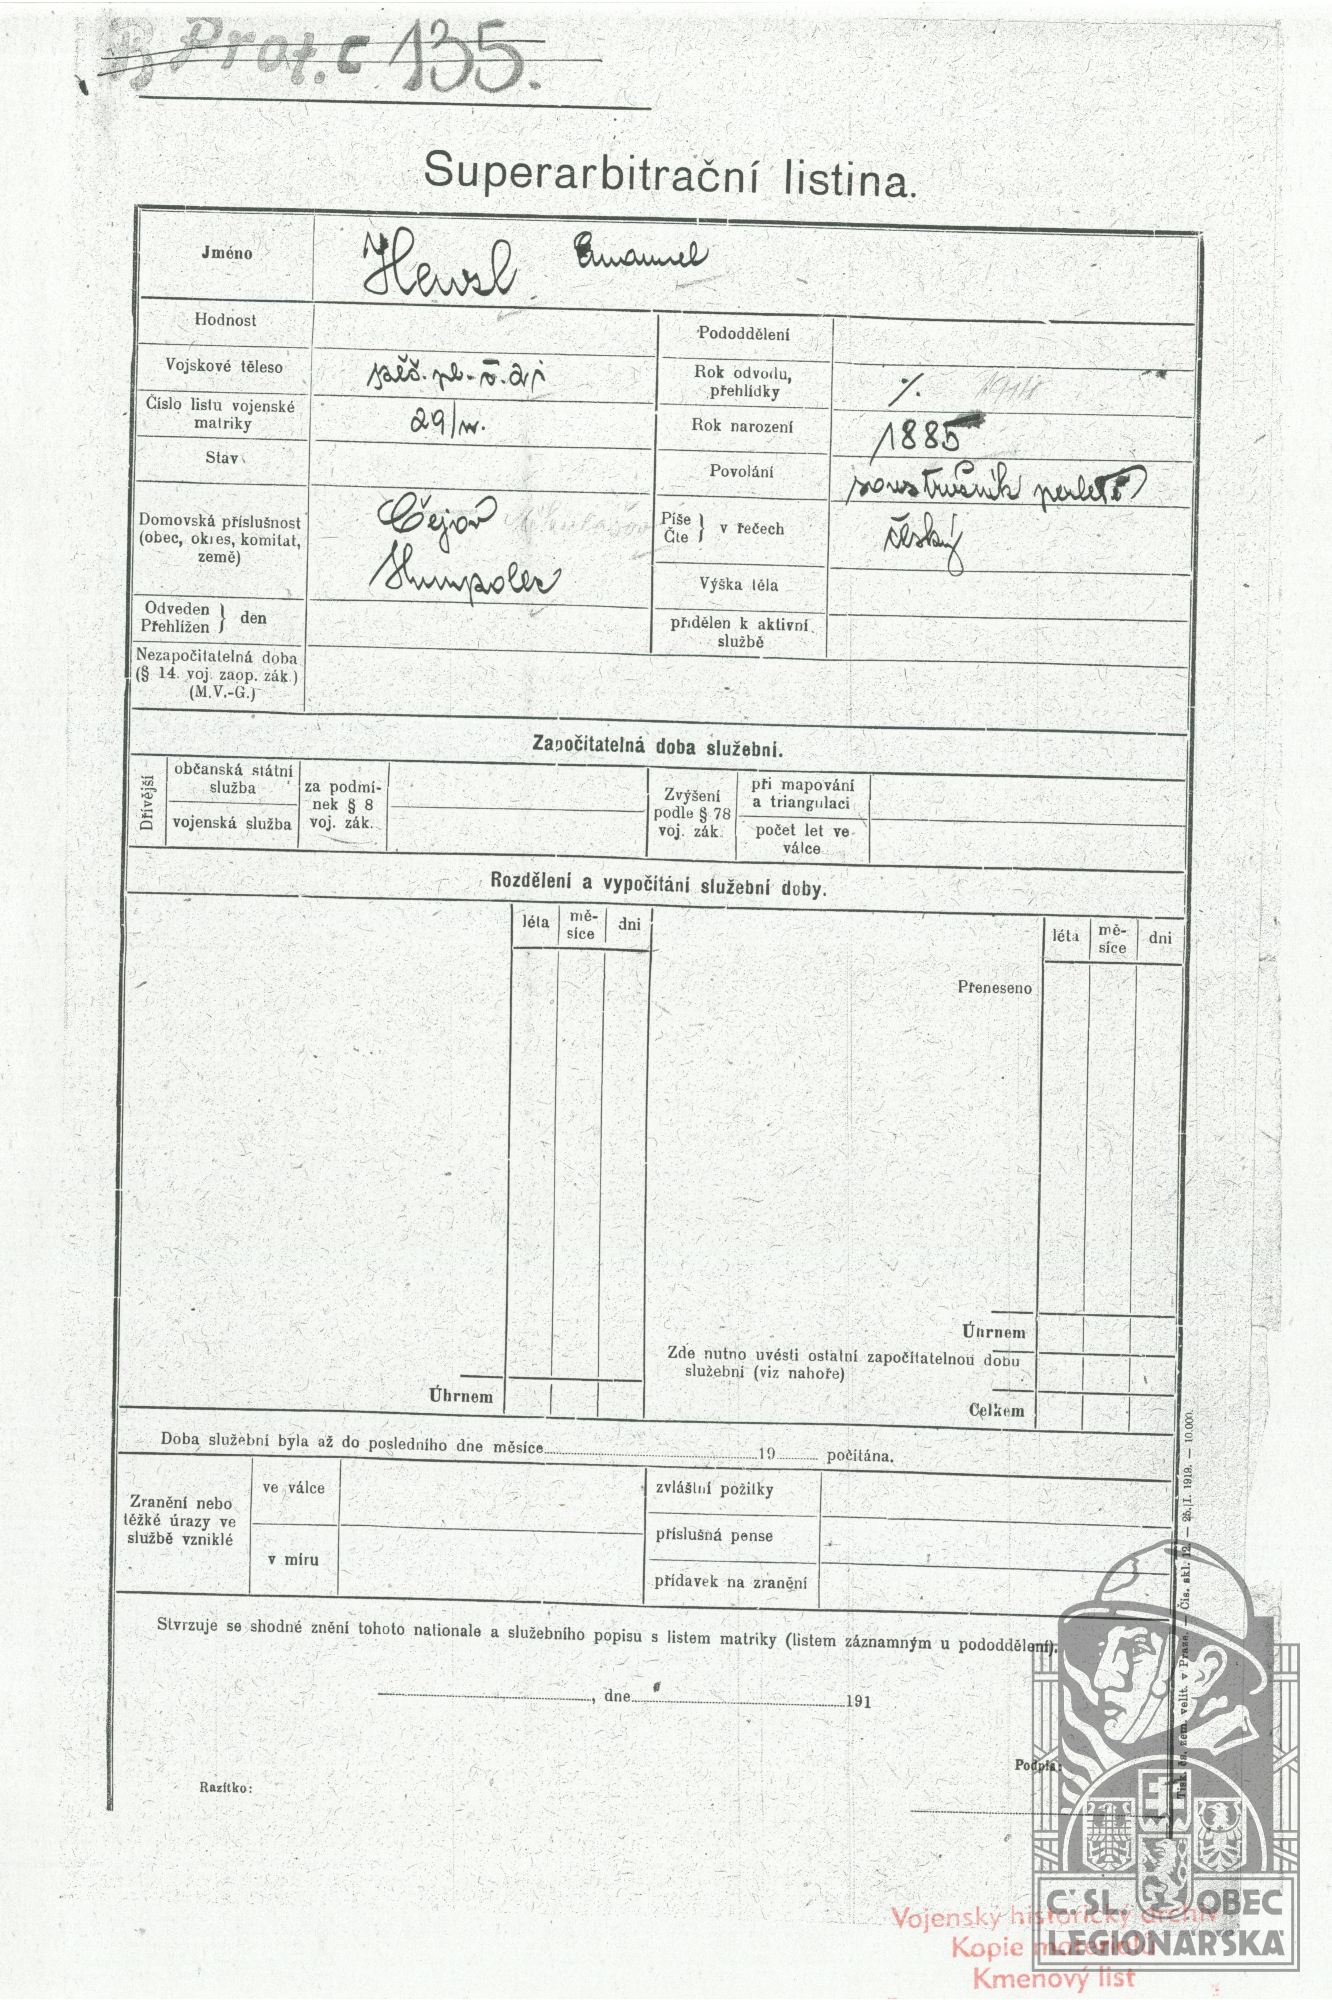 Prot. č 135.
Superarbitrační listina.
Jméno
Hensl Emanuel
Hodnost
Pododdělení
Vojskové těleso
pěš. pl. č. 21
Rok odvodu, přehlídky
·/. 
Číslo listu vojenské matriky
Rok narození
1885
Stav
Povolání
soustružník perletě
Domovská příslušnost
(obec, okres, komitat, země)
Čejov
Humpolec
Píše
Čte } v řečech
český
Výška těla
Odveden
Přehlížen } den
přidělen k aktivní službě
Nezapočitatelná doba
(§ 14. voj. zaop. zák.)
(M.V.-G.)
Započitatelná doba služební.
Dřívější
občanská státní služba
vojenská služba
za podmínek § 8 voj. zák.
Zvýšení podle § 78 voj. zák.
při mapování a triangulaci
počet let ve válce
Rozdělení a vypočítání služební doby.
léta | mě-síce | dni
léta | mě-síce | dni
Přeneseno
Úhrnem
Zde nutno uvésti ostatní započitatelnou dobu
služební (viz nahoře)
Úhrnem
Celkem
Doba služební byla až do posledního dne měsíce 19 počítána.
Zranění nebo těžké úrazy ve službě vzniklé
ve válce
v míru
zvláštní požitky
příslušná pense
přídavek na zranění
Stvrzuje se shodné znění tohoto nationale a služebního popisu s listem matriky (listem záznamným u pododdělení).
, dne 191
Podpis:
Razítko:
Tisk. čs. zem. velit. v Praze. — Čís. skl. 12. — 25./I. 1919. — 10.000.
Č·SL· OBEC
LEGIONÁŘSKÁ
Vojenský historický archiv
Kopie materiálu
Kmenový list